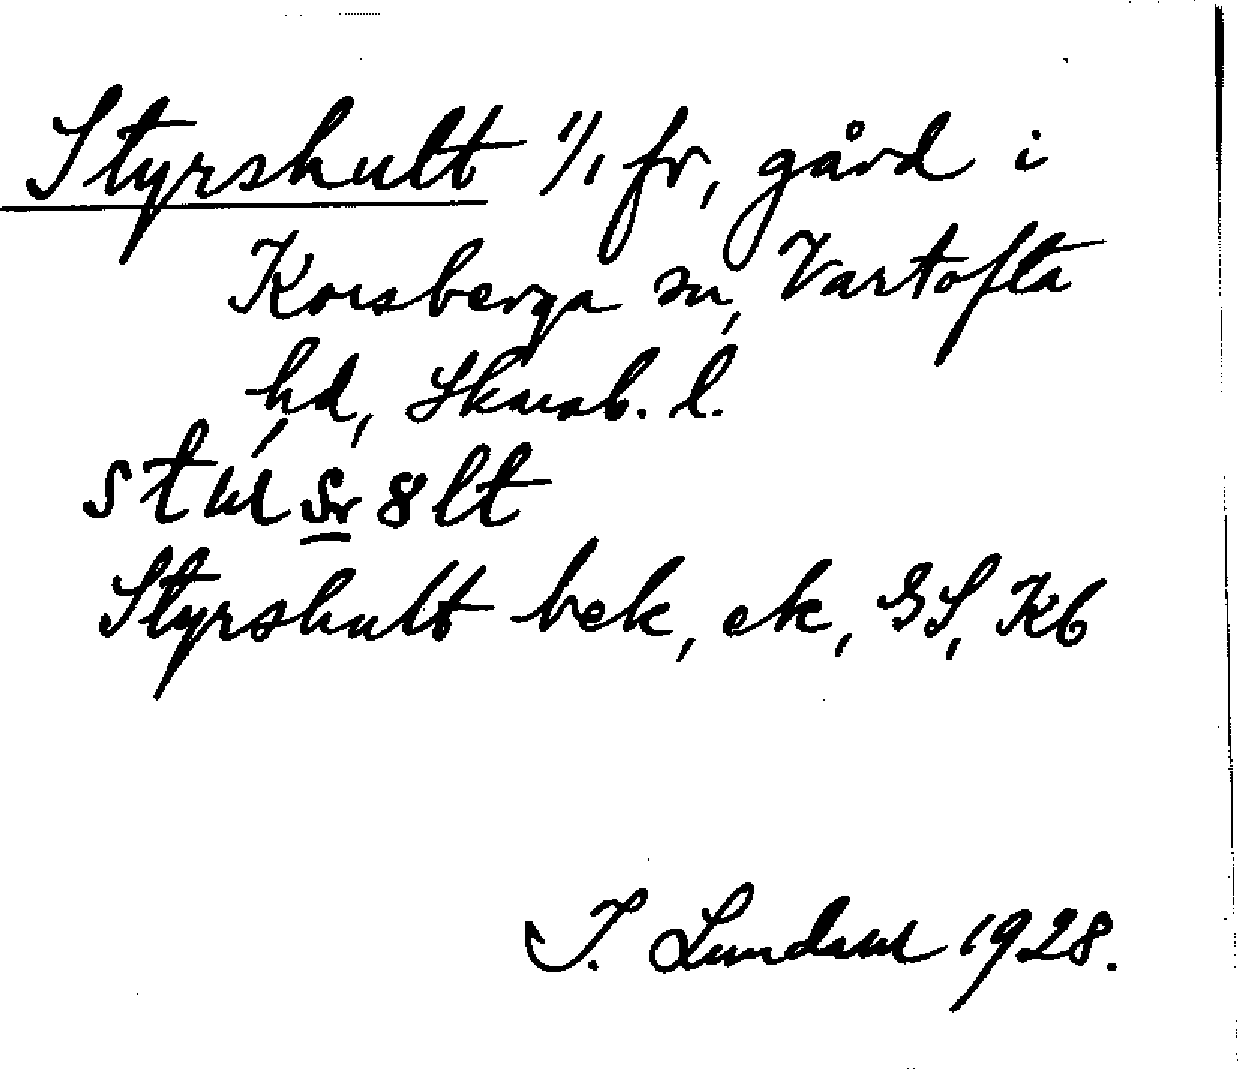 Styrshult 1/1 fr, gård i
Korsberga sn, Vartofta
hd, Skarab. l.
Styrshult bek, ek, GS, Kb
I. Lundahl 1928.